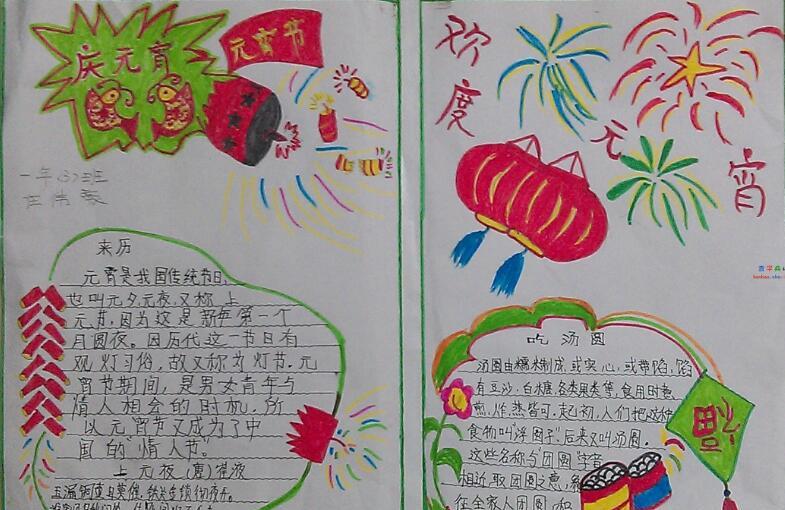 庆元宵
元宵节
一年(3)班
来历
元宵是我国传统节日,
也叫元夕,元夜,又称上
元节,因为这是新年第一个
月圆夜。因历代这一节日有
观灯习俗,故又称为灯节.元
宵节期间,是男女青年与
情人相会的时机.所
以元宵节又成为了中
国的"情人节"。
上元夜(唐)崔液
玉漏铜壶且莫催,铁关金锁彻夜开。
欢度
元
宵
吃汤圆
汤圆由糯米制成,或实心,或带馅,馅
有豆沙,白糖,各类果类等,食用时煮,
煎,炸,蒸皆可.起初,人们把这种
食物叫"浮圆子".后来又叫汤圆.
这些名称与"团圆"字音
相近,取团圆之意,
在全家人团圆,和
福